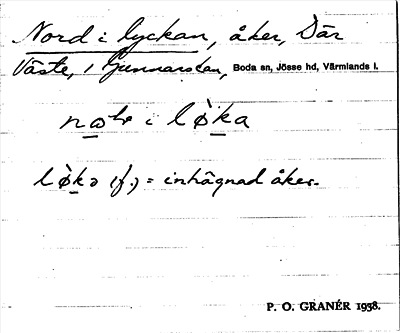 Nord i lyckan, åker, Där
Väste, i Gunnarskan, Boda sn, Jösse hd, Värmlands l.
i lø̀ka
lø̀kə (f.) = inhägnad åker.
P. O. GRANÉR 1938.